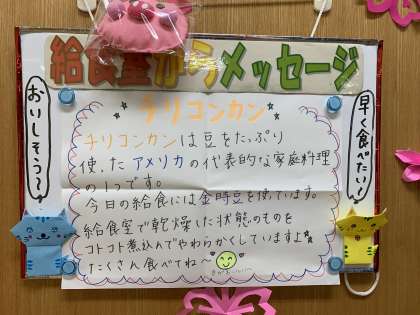 給食室からメッセージ
おいしそう~?
早く食べたい!
チリコンカン
チリコンカンは豆をたっぷり
使ったアメリカの代表的な家庭料理
の1つです。
今日の給食には金時豆を使っています。
給食室で乾燥した状態のものを
コトコト煮込んでやわらかくしていますよ
たくさん食べてね〜